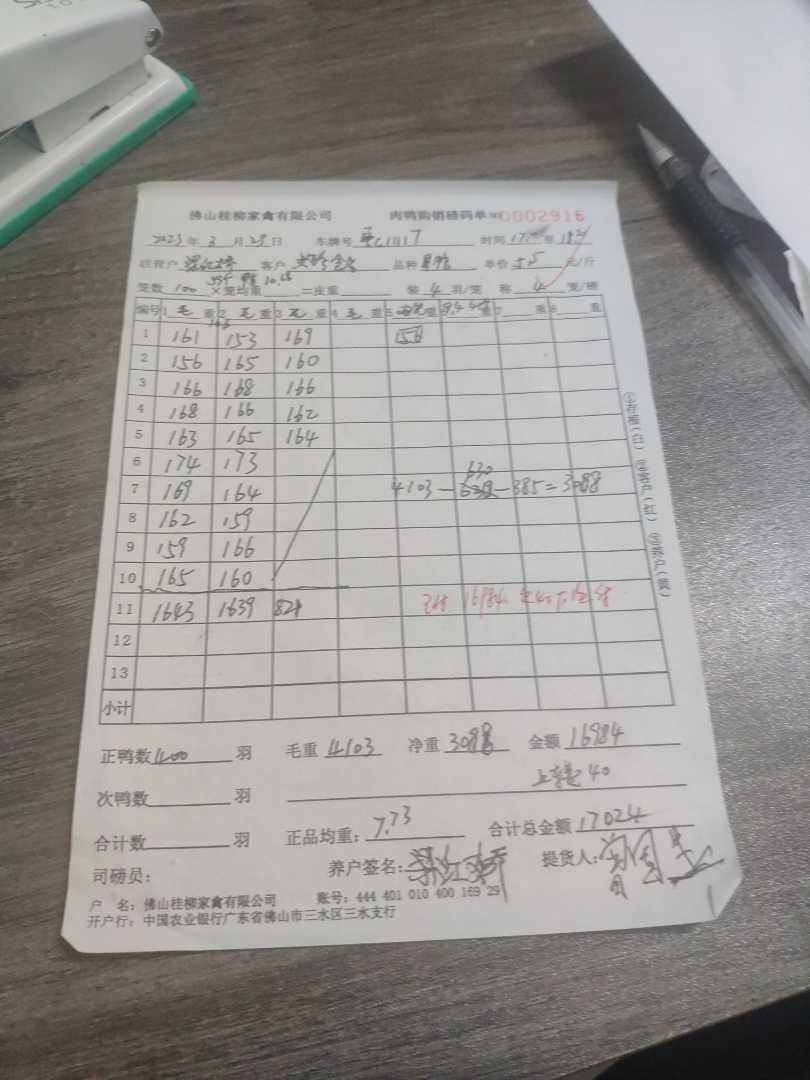 佛山桂柳家禽有限公司 肉鸭购销磅码单 NO 0002916
2023年3月29日 车牌号 时间 至
客户 品种 单价 5.5 元/斤
笼数 100 ×笼均重 =皮重 装 4 羽/笼 称 4 笼/磅
编号 1 毛 重 2 毛 重 3 毛 重 4 毛 重 5 重 6 重 7 重 8 重
1 161 153 169 156
2 156 165 160
3 166 168 166
4 168 166 162
5 163 165 164
6 174 173
630
7 169 164 4103 - - 385 = 3088
8 162 159
9 159 166
10 165 160
11 1643 1639 821
12
13
小计
正鸭数 400 羽 毛重 4103 净重 3088 金额 16984
次鸭数 羽 40
合计数 羽 正品均重: 7.73 合计总金额 17024
司磅员: 养户签名: 提货人:
户 名: 佛山桂柳家禽有限公司 账号: 444 401 010 400 169 29
开户行: 中国农业银行广东省佛山市三水区三水支行
①存根(白) ②客户(红) ③养户(黄)